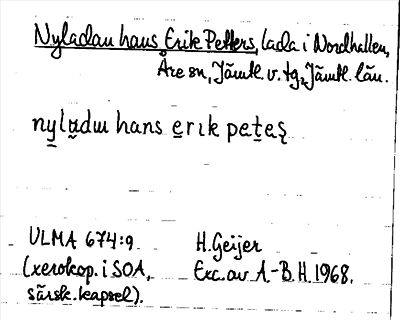 Nyladan hans Erik Petters, lada i Nordhallen,
Åre sn, Jämtl. v. tg, Jämtl. län.
ny̲la̲dɯ hans e̲rɩk pet̲es̨
ULMA 674:9 H. Geijer
(xerokop. i SOA, Exc. av A.-B. H. 1968.
särsk. kapsel).